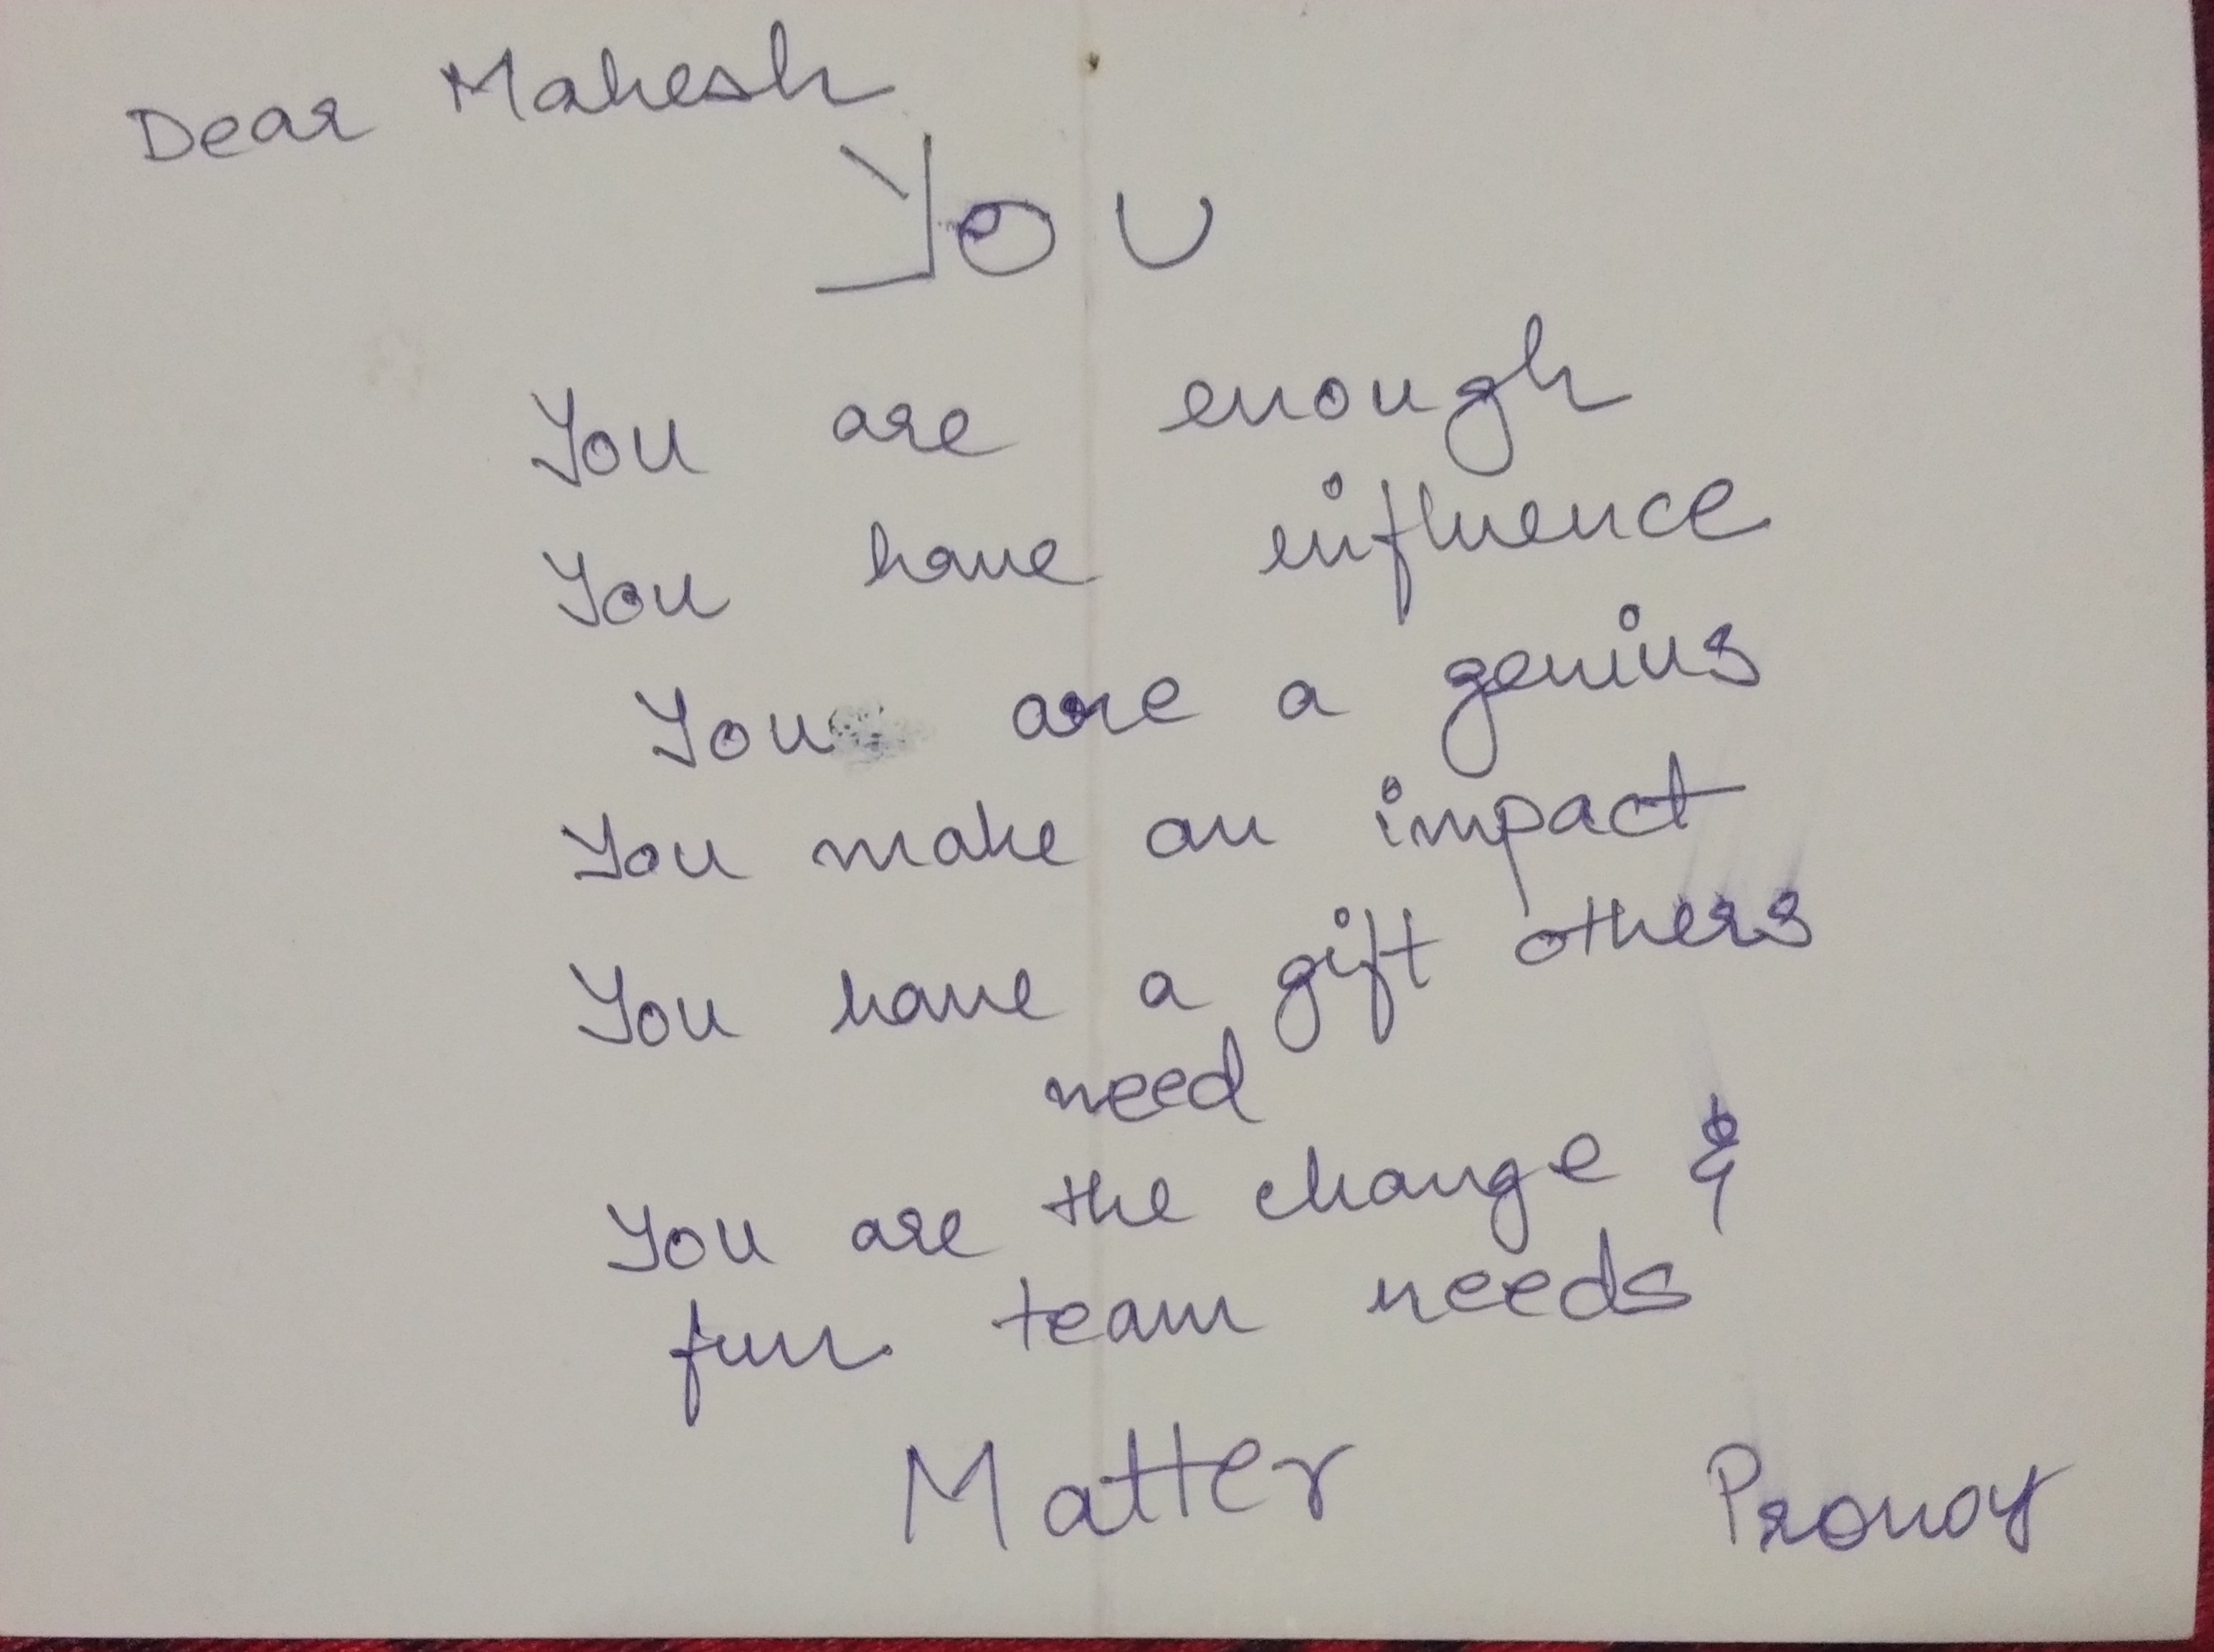 Dear Mahesh
You
You are enough
You have influence
You are a genius
You make an impact
You have a gift others
need
You are the change &
fun team needs
Matter
Pronoy